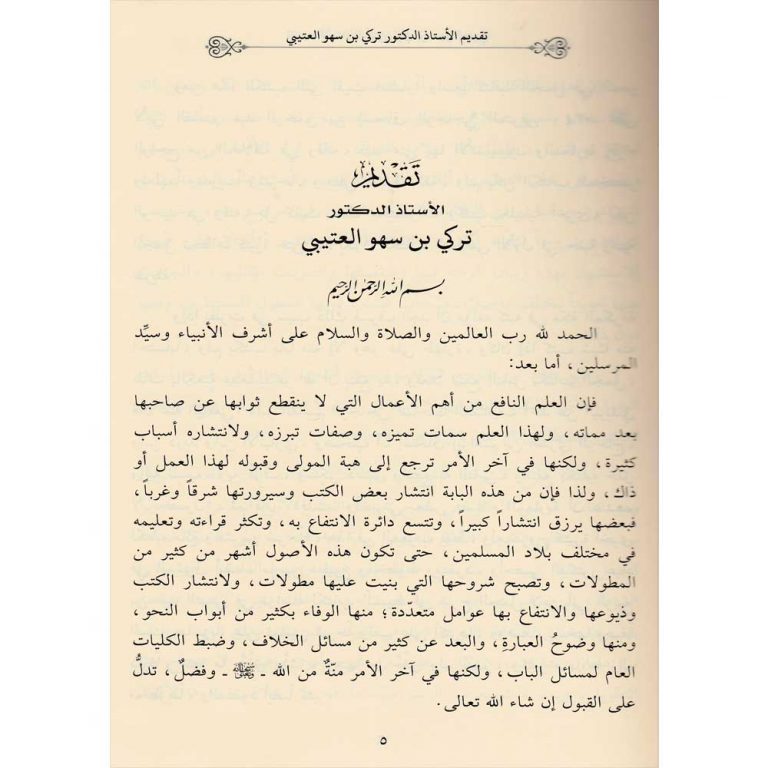 تقديم الأستاذ الدكتور تركي بن سهو العتيبي
تقديم
الأستاذ الدكتور
تركي بن سهو العتيبي
بسم الله الرحمن الرحيم
الحمد لله رب العالمين والصلاة والسلام على أشرف الأنبياء وسيِّد
المرسلين، أما بعد:
فإن العلم النافع من أهم الأعمال التي لا ينقطع ثوابها عن صاحبها
بعد مماته، ولهذا العلم سمات تميزه، وصفات تبرزه، ولانتشاره أسباب
كثيرة، ولكنها في آخر الأمر ترجع إلى هبة المولى وقبوله لهذا العمل أو
ذاك، ولذا فإن من هذه البابة انتشار بعض الكتب وسيرورتها شرقاً وغرباً،
فبعضها يرزق انتشاراً كبيراً، وتتسع دائرة الانتفاع به، وتكثر قراءته وتعليمه
في مختلف بلاد المسلمين، حتى تكون هذه الأصول أشهر من كثير من
المطولات، وتصبح شروحها التي بنيت عليها مطولات، ولانتشار الكتب
وذيوعها والانتفاع بها عوامل متعدّدة؛ منها الوفاء بكثير من أبواب النحو،
ومنها وضوحُ العبارة، والبعد عن كثير من مسائل الخلاف، وضبط الكليات
العام لمسائل الباب، ولكنها في آخر الأمر منّةٌ من الله ـ ـ وفضلٌ، تدلُّ
على القبول إن شاء الله تعالى.
٥